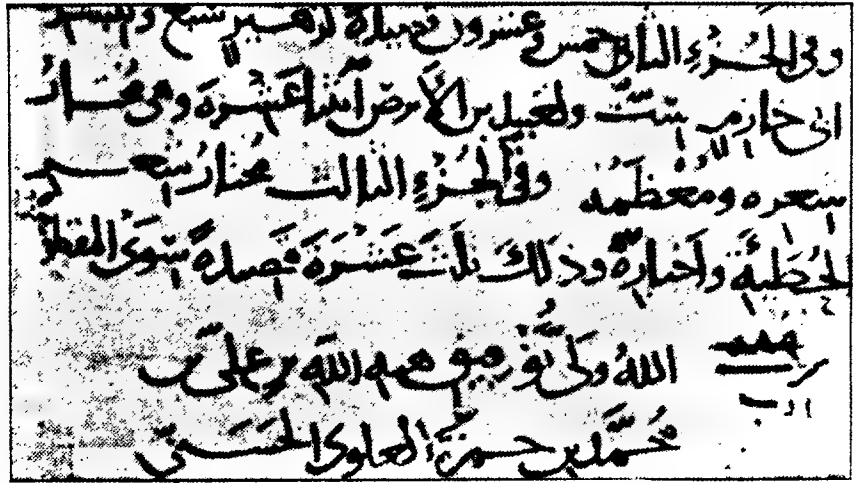 وفى الجُزءِ الثانى خمس وعشرون قصيدة لزهير سبع وللبشر
ابى خازم ست وللعبيد بن الابرص اثنتا عَشرَة وهى مختار
شعره ومُعظمه وفى الجُزءِ الثالث مُختارُ شعر
الحُطَيئَةِ واَخبارُهُ وذلك ثلث عَشَرَةَ قصيدةً سوَى المقطو
الله ولىُّ توفيق هبه الله بن علىّ بن
مُحَمَّد بن حمزَةَ العلوى الحَسَنى